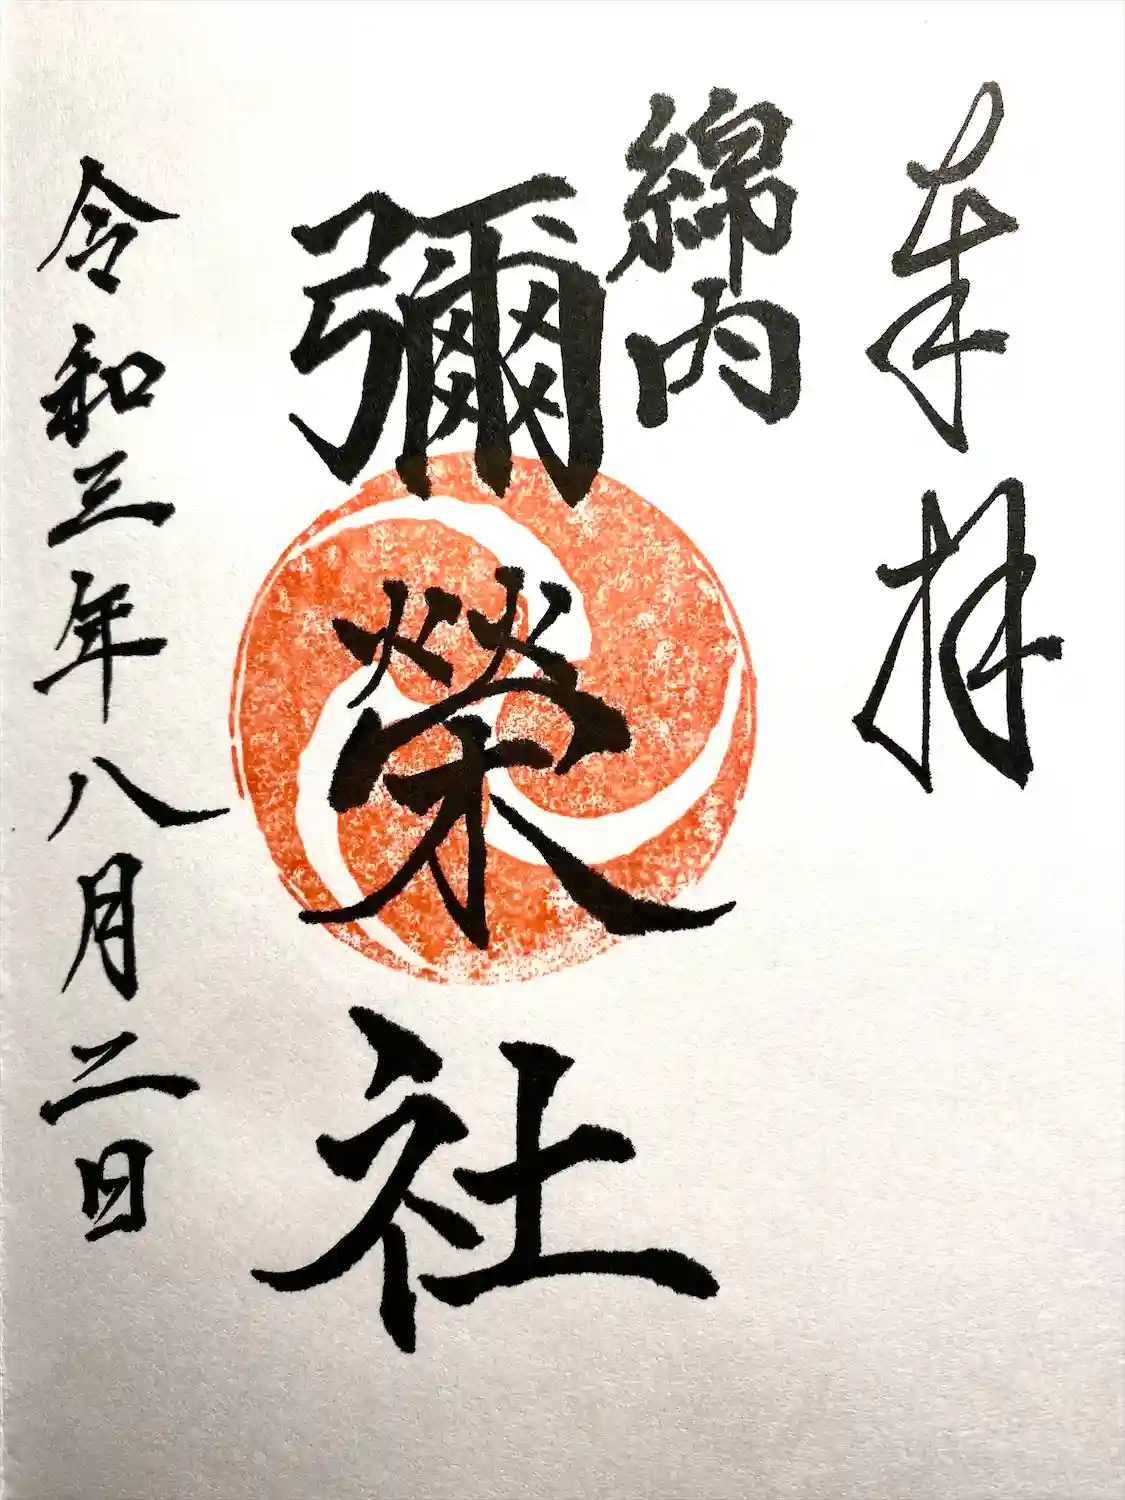 奉拝
綿内
彌榮社
令和三年八月二日